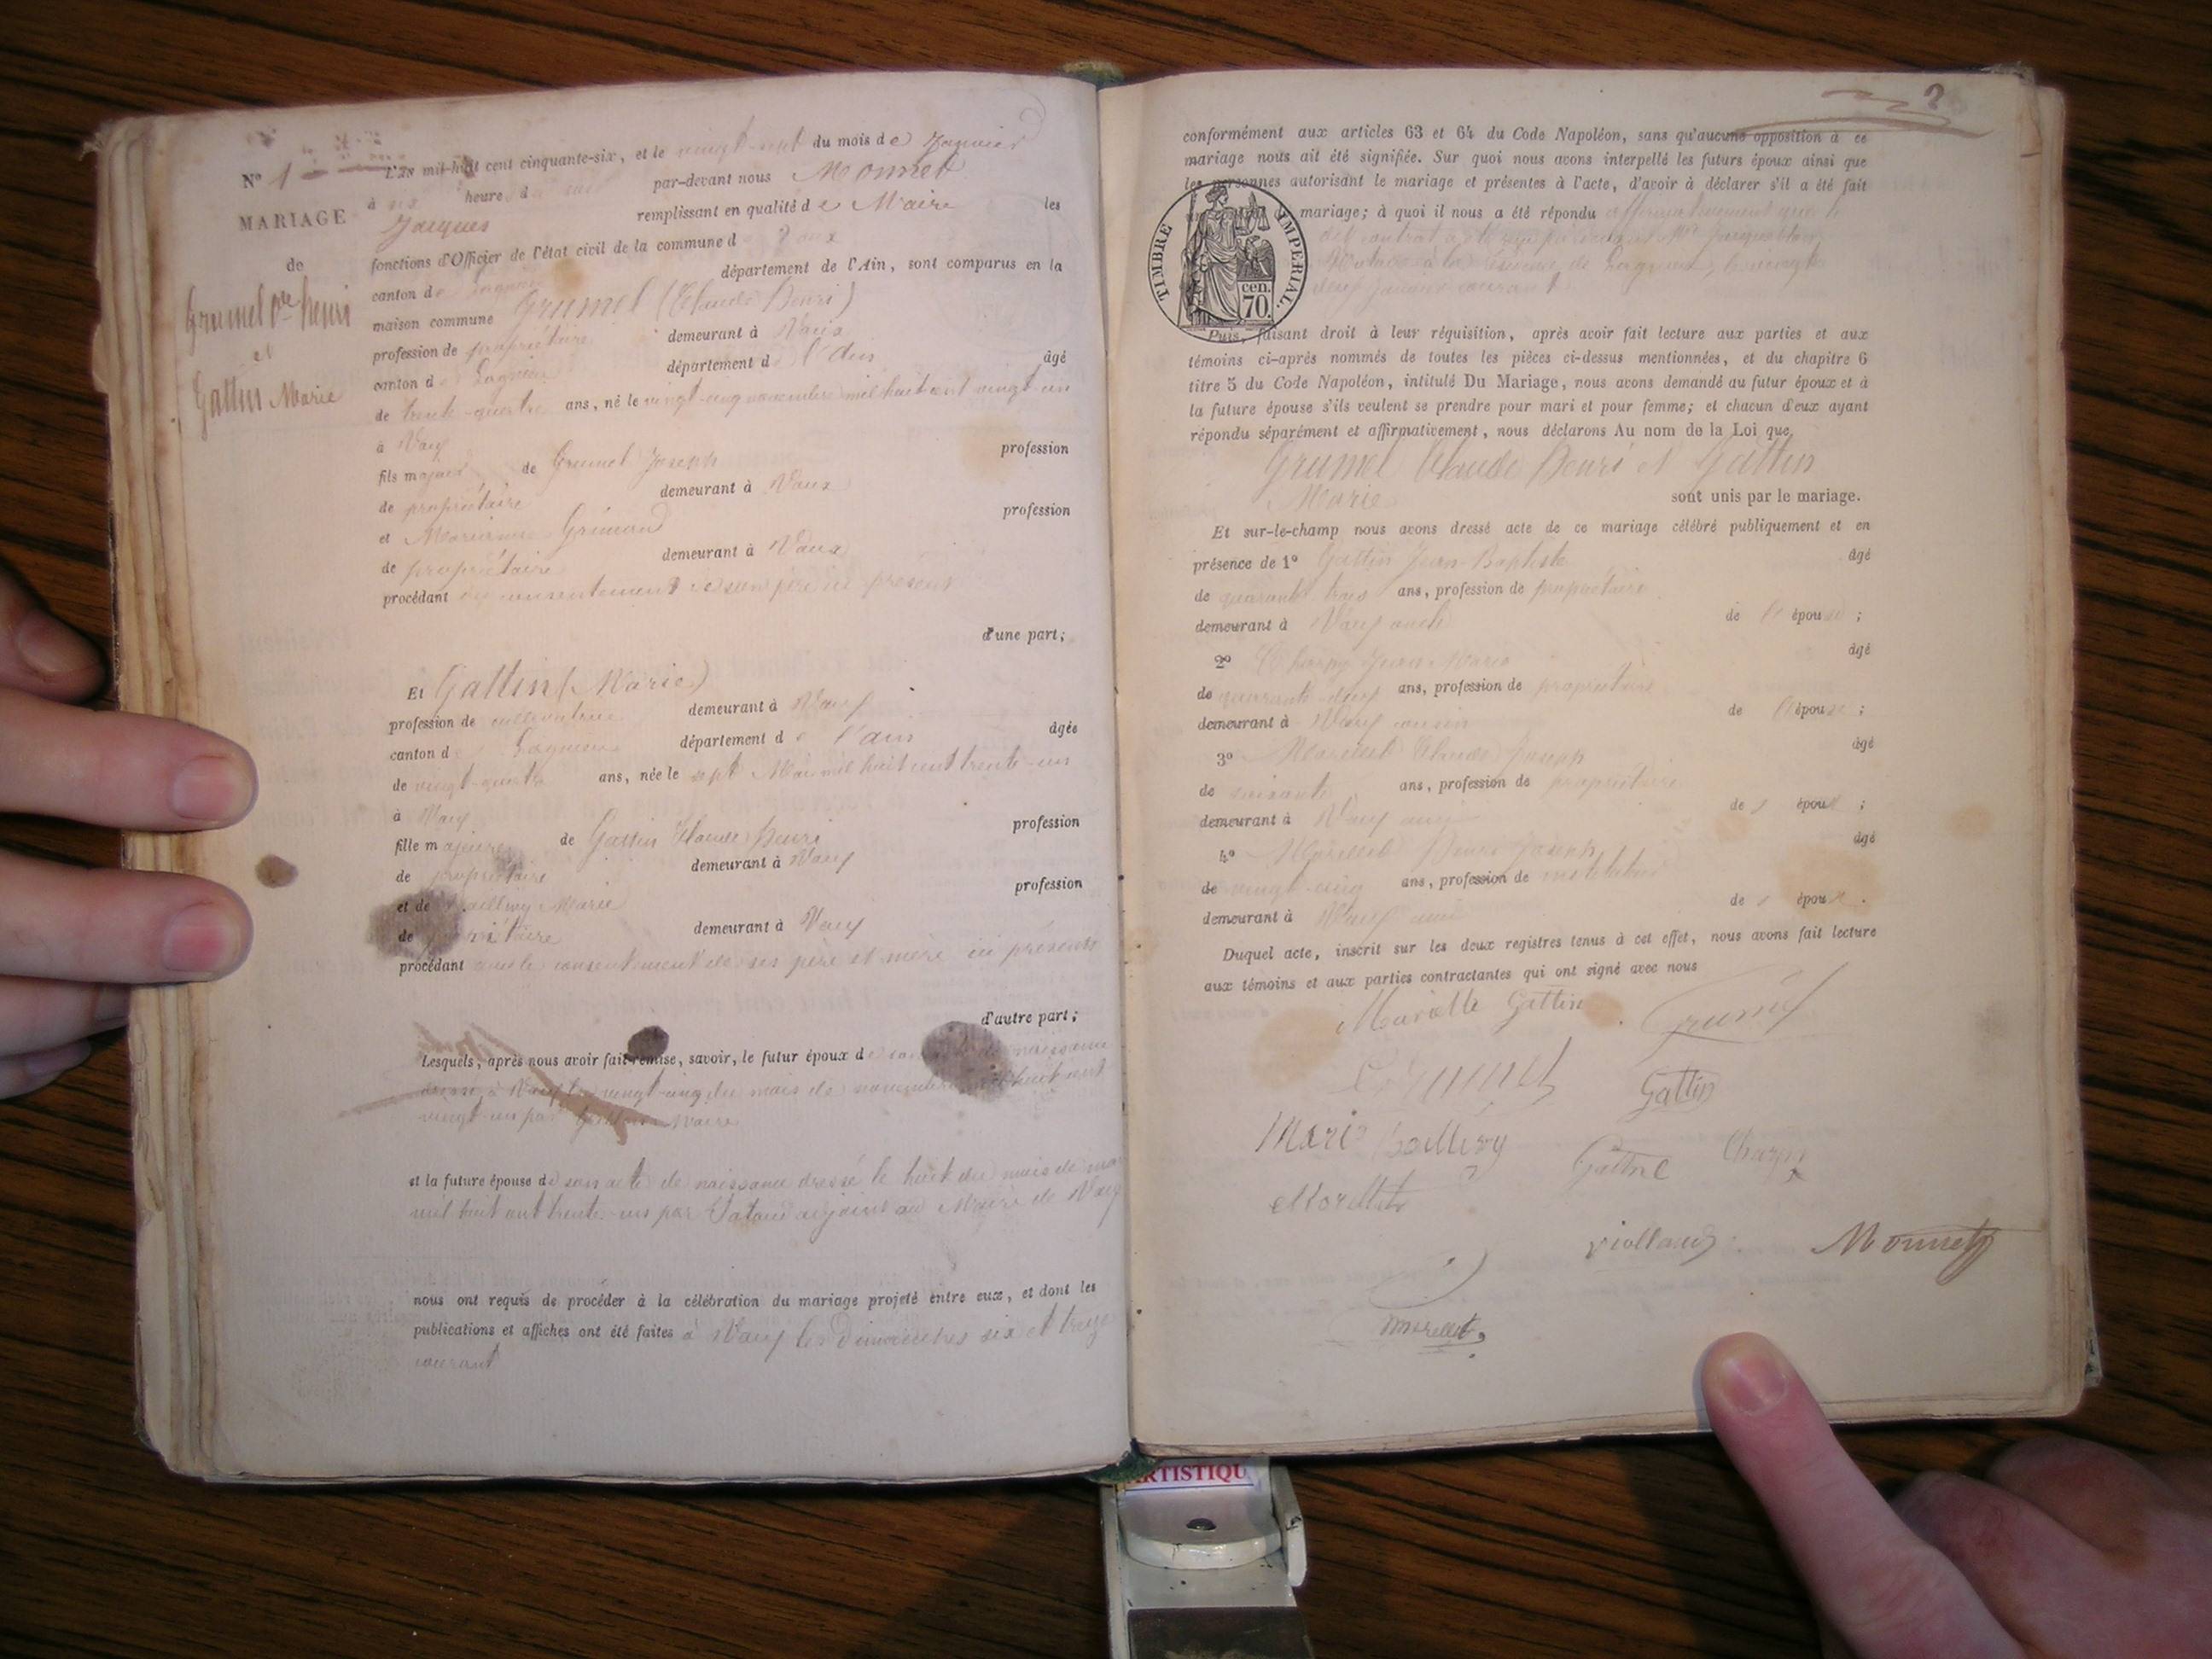 N° 1
MARIAGE
de
Grumel Cde henri
et
Gattin Marie
L'AN mil-huit cent cinquante-six, et le vingt-sept du mois de Janvier
à six heure d par-devant nous Monnet
Jacques remplissant en qualité de Maire les
fonctions d'Officier de l'état civil de la commune d Vaux
canton de Lagnieu département de l'Ain, sont comparus en la
maison commune Grumel (Claude Henri)
profession de propriétaire demeurant à Vaux
canton de Lagnieu département de l'Ain âgé
de trente-quatre ans, né le vingt-cinq novembre mil huit cent vingt-un
à Vaux
fils majeur de Grumel Joseph profession
de propriétaire demeurant à Vaux
et Marianne Grimaud profession
de propriétaire demeurant à Vaux
procédant du consentement de son père ici présent
d'une part;
Et Gattin (Marie)
profession de cultivatrice demeurant à Vaux
canton de Lagnieu département de l'ain âgée
de vingt-quatre ans, née le sept Mai mil huit cent trente-un
à Vaux
fille majeure de Gattin Claude Henri profession
de propriétaire demeurant à Vaux
et de Marie profession
de propriétaire demeurant à Vaux
procédant avec le consentement de ses père et mère ici présents
d'autre part;
Lesquels, après nous avoir fait remise, savoir, le futur époux de naissance
dressé à Vaux le vingt-cinq du mois de novembre mil huit cent
vingt-un par Maire
et la future épouse de son acte de naissance dressé le huit du mois de mai
mil huit cent trente-un par adjoint au Maire de Vaux
nous ont requis de procéder à la célébration du mariage projeté entre eux, et dont les
publications et affiches ont été faites à Vaux les Dimanches six et treize
courant
2
conformément aux articles 63 et 64 du Code Napoléon, sans qu'aucune opposition à ce
mariage nous ait été signifiée. Sur quoi nous avons interpellé les futurs époux ainsi que
les personnes autorisant le mariage et présentes à l'acte, d'avoir à déclarer s'il a été fait
mariage; à quoi il nous a été répondu affirmativement que le
dit contrat a été reçu par Me
Notaire à la résidence de Lagnieu, le vingt
deux Janvier courant
TIMBRE IMPERIAL.
cen.
70.
Puis, faisant droit à leur réquisition, après avoir fait lecture aux parties et aux
témoins ci-après nommés de toutes les pièces ci-dessus mentionnées, et du chapitre 6
titre 5 du Code Napoléon, intitulé Du Mariage, nous avons demandé au futur époux et à
la future épouse s'ils veulent se prendre pour mari et pour femme; et chacun d'eux ayant
répondu séparément et affirmativement, nous déclarons Au nom de la Loi que
Grumel Claude Henri et Gattin
Marie sont unis par le mariage.
Et sur-le-champ nous avons dressé acte de ce mariage célébré publiquement et en
présence de 1° Gattin Jean-Baptiste âgé
de quarante trois ans, profession de propriétaire
demeurant à Vaux oncle de l'épouse ;
2° Charpy Jean-Marie âgé
de quarante-deux ans, profession de propriétaire
demeurant à Vaux cousin de l'épouse ;
3° Morellet Claude Joseph âgé
de soixante ans, profession de propriétaire
demeurant à Vaux ami de l'époux ;
4° Morellet Joseph âgé
de vingt-cinq ans, profession de instituteur
demeurant à Vaux ami de l'époux .
Duquel acte, inscrit sur les deux registres tenus à cet effet, nous avons fait lecture
aux témoins et aux parties contractantes qui ont signé avec nous
Mariette Gattin Grumel
Grumel Gattin
Marie Baillivy Gattin Charpy
Morellet
violland Monnet
morellet
ARTISTIQU